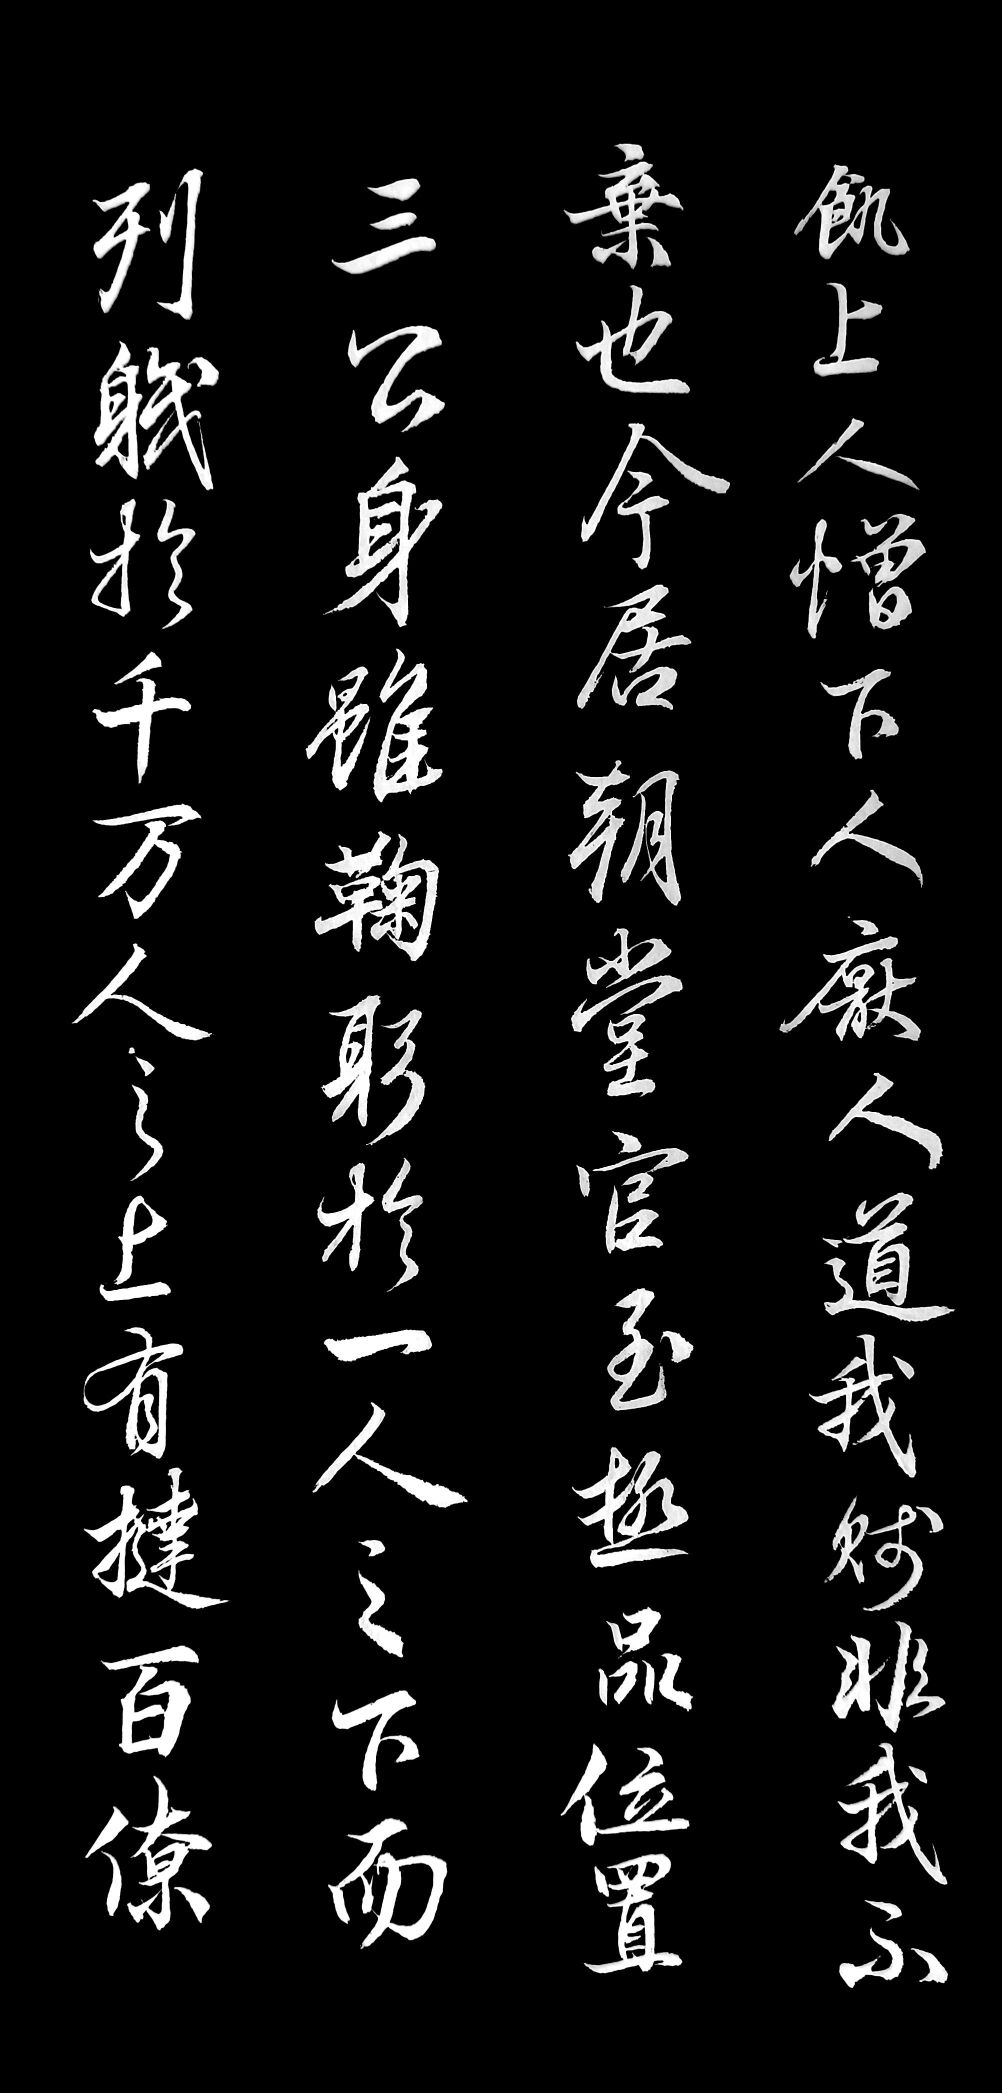 飢上人憎下人厭人道我賤非我不
棄也今居朝堂官至極品位置
三公身雖鞠躬於一人之下而
列職於千万人之上有撻百僚